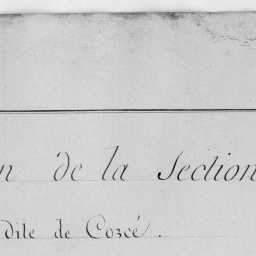 n de la Section
dite de Cozcé.